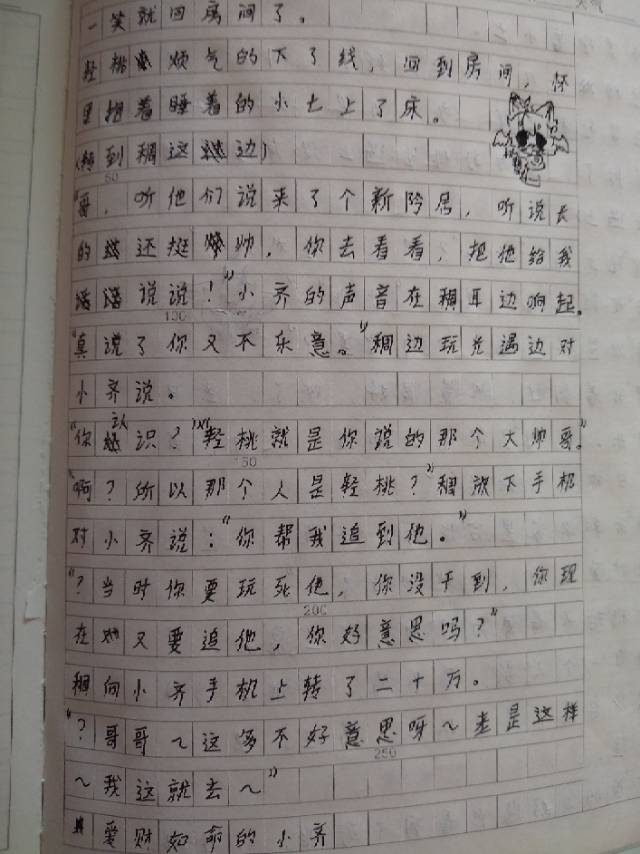 一笑就回房间了。
轻桃烦气的下了线，回到房间，怀
里抱着睡着的小七上了床。
(转到稠这边)
50
"哥，听他们说来了个新阾居，听说长
的还挺帅，你去看看，把他给我
活活说说！"小齐的声音在稠耳边响起。
100
"真说了你又不乐意。"稠边玩边对
小齐说。
"你认识？""轻桃就是你说的那个大帅哥。"
150
"啊？所以那个人是轻桃？"稠放下手机
对小齐说："你帮我追到他。"
"？当时你要玩死他，你没干到，你现
200
在又要追他，你好意思吗？"
稠向小齐手机上转了二十万。
"？哥哥～这多不好意思呀～老是这样
250
～我这就去～"
爱财如命的小齐